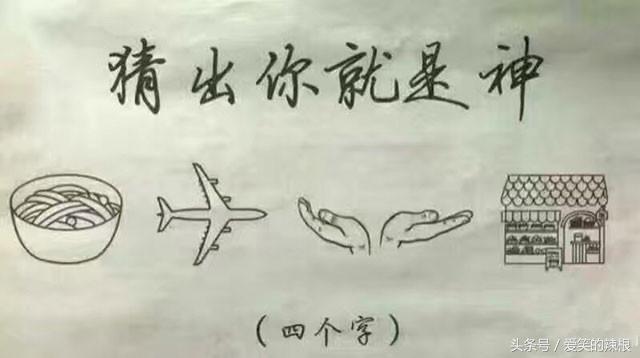 猜出你就是神
(四个字)
头条号/爱笑的辣根